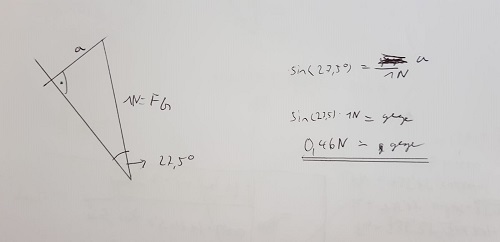 a
1N = FG
27,5°
sin(27,5°) = a
1N
sin(27,5) · 1N = gege
0,46N = gege